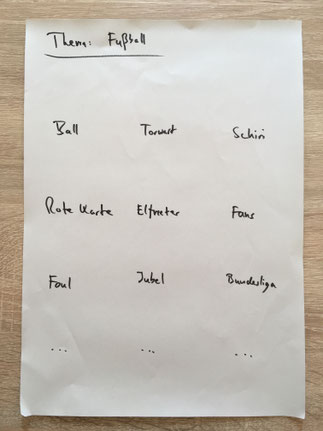 Thema: Fußball
Ball Torwart Schiri
Rote Karte Elfmeter Fans
Foul Jubel Bundesliga
... ... ...